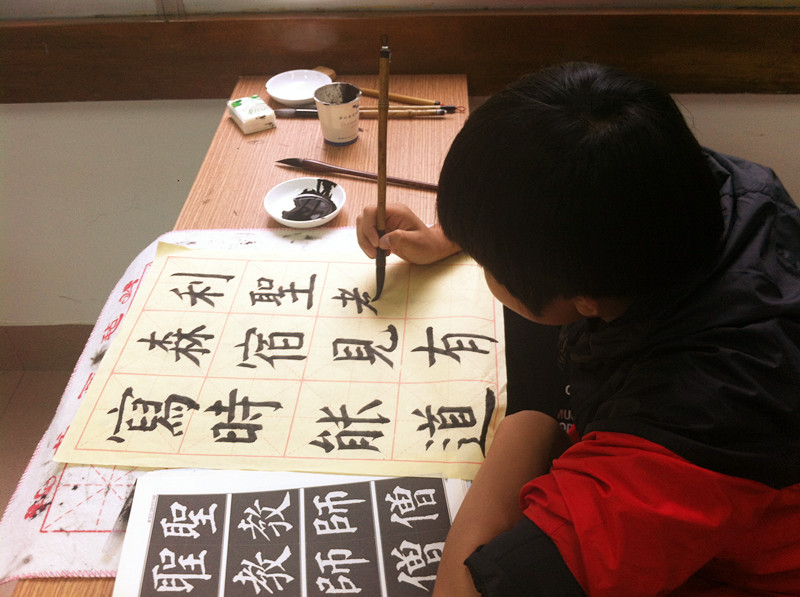 利聖老
森宿見有
寫時能道
聖教師僧
聖教師僧